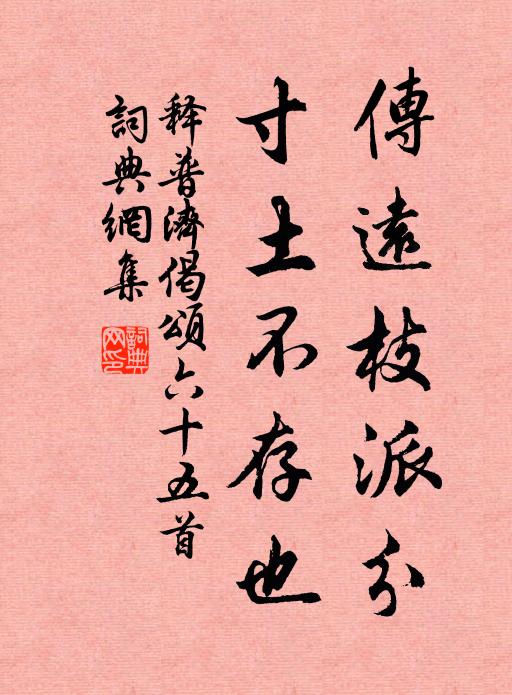 傳遠枝派分
寸土不存也
释普濟偈頌六十五首
詞典網集
詞典網印